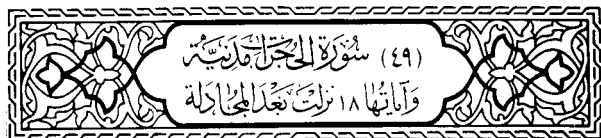 (٤٩) سُورَةِ الحُجُرَاتِ مَدَنِيَّة
وَآيَاتُهَا ١٨ نَزَلَتْ بَعْدَ المُجَادلة